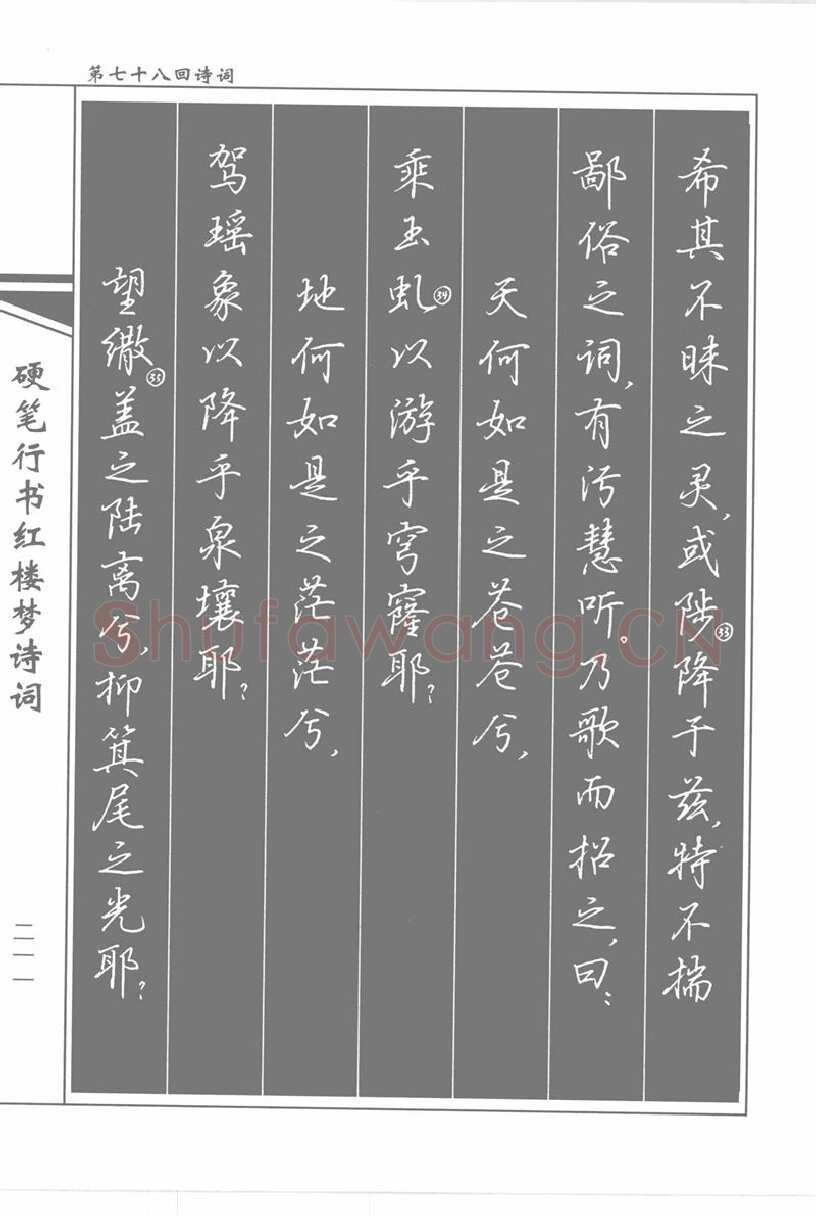 第七十八回诗词
希其不昧之灵,或陟㉝降于兹,特不揣
鄙俗之词,有污慧听。乃歌而招之,曰:
天何如是之苍苍兮,
乘玉虬㉞以游乎穹窿耶?
地何如是之茫茫兮,
驾瑶象以降乎泉壤耶?
望繖㉟盖之陆离兮,抑箕尾之光耶?
硬笔行书红楼梦诗词
二一一
Shufawang.CN